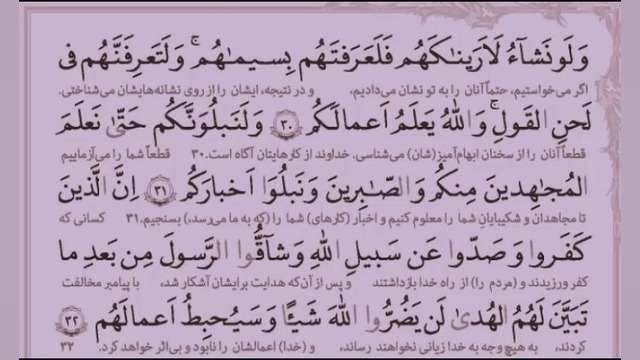 وَلَو نَشآءُ لَاَرَينٰکَهُم فَلَعَرَفتَهُم بِسیمٰهُم ۚ وَلَتَعرِفَنَّهُم فی
اگر می‌خواستیم، حتماً آنان را به تو نشان می‌دادیم، و در نتیجه، ایشان را از روی نشانه‌هایشان می‌شناختی.
لَحنِ القَولِ ۚ وَاللهُ یَعلَمُ اَعمالَکُم ۳۰ وَلَنَبلُوَنَّکُم حَتّیٰ نَعلَمَ
قطعاً آنان را از سخنان ابهام‌آمیز(شان) می‌شناسی. خداوند از کارهایتان آگاه است. ۳۰ قطعاً شما را می‌آزماییم
المُجٰهِدینَ مِنکُم وَالصّٰبِرینَ وَنَبلُوَا اَخبارَکُم ۳۱ اِنَّ الَّذینَ
تا مجاهدان و شکیبایانِ شما را معلوم کنیم و اخبار (کارهای) شما را (که به ما می‌رسد)، بسنجیم. ۳۱ کسانی که
کَفَروا وَ صَدّوا عَن سَبیلِ اللهِ وَشآقُّوا الرَّسولَ مِن بَعدِ ما
کفر ورزیدند و (مردم را) از راه خدا بازداشتند و پس از آن‌که هدایت برایشان آشکار شد، با پیامبر مخالفت
تَبَیَّنَ لَهُمُ الهُدیٰ لَن یَضُرُّوا اللهَ شَیئًا وَ سَیُحبِطُ اَعمالَهُم ۳۲
کردند، به هیچ وجه به خدا زیانی نخواهند رساند، و (خدا) اعمالشان را نابود و بی‌اثر خواهد کرد. ۳۲